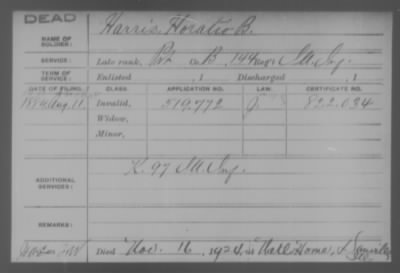 DEAD
NAME OF SOLDIER: Harris, Horatio B.
SERVICE: Late rank, Pvt Co. B, 144 Reg't Ill Inf.
TERM OF SERVICE: Enlisted , 1 Discharged , 1
DATE OF FILING. CLASS. APPLICATION NO. LAW. CERTIFICATE NO.
1884 Aug. 11 Invalid, 519,772 J 822.034
Widow,
Minor,
ADDITIONAL SERVICES: K. 97 Ill Inf.
REMARKS:
Died Nov. 16, 1924, at Natl Home, Danville Ill